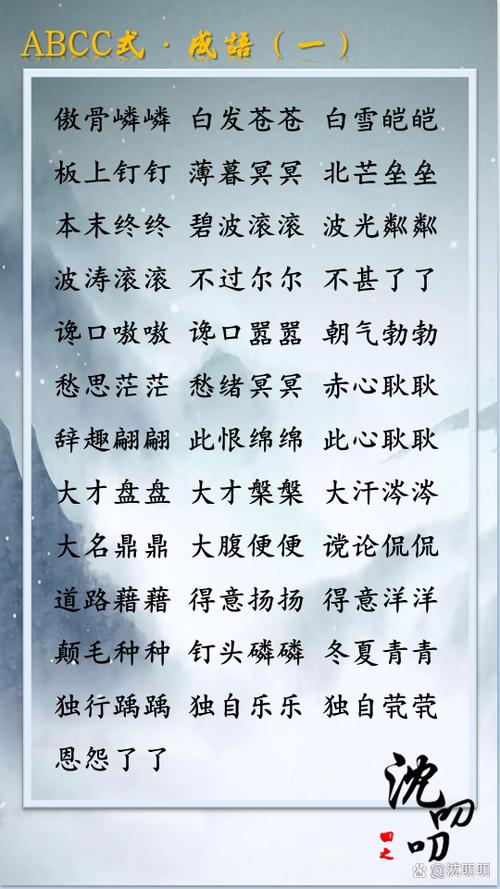 ABCC式·成語（一）
傲骨嶙嶙 白发苍苍 白雪皑皑
板上钉钉 薄暮冥冥 北芒垒垒
本末终终 碧波滚滚 波光粼粼
波涛滚滚 不过尔尔 不甚了了
谗口嗷嗷 谗口嚣嚣 朝气勃勃
愁思茫茫 愁绪冥冥 赤心耿耿
辞趣翩翩 此恨绵绵 此心耿耿
大才盘盘 大才槃槃 大汗涔涔
大名鼎鼎 大腹便便 谠论侃侃
道路藉藉 得意扬扬 得意洋洋
颠毛种种 钉头磷磷 冬夏青青
独行踽踽 独自乐乐 独自茕茕
恩怨了了
沈叨叨
@沈叨叨